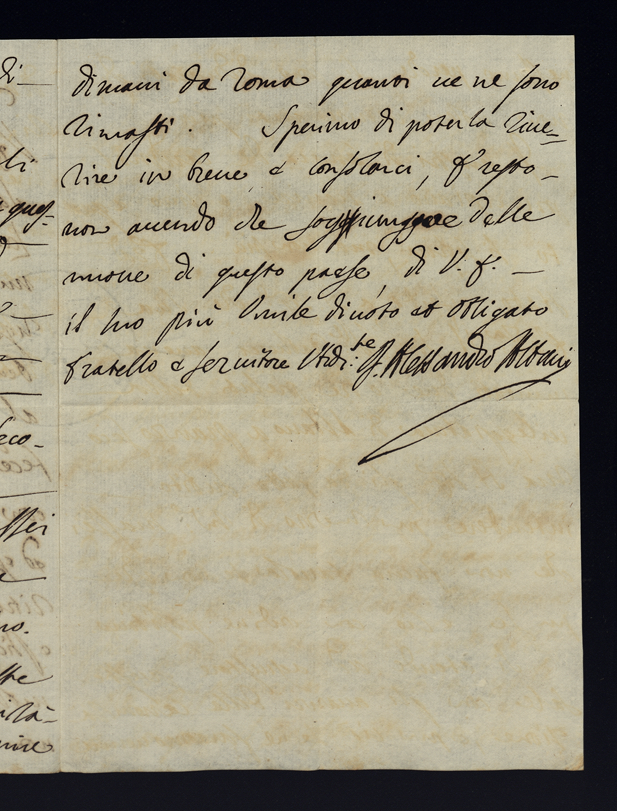 di
dimani da Roma quanti ve ne sono
rimasti. Sperimo di poterla rive=
li
rire in breve, e consolarci, e resto
ques=
non avendo che soggiungere delle
nuove di questo paese, di V. E.
il suo più Umile divoto et obligato
fratello e servitore Obdi:te G. Alessandro Albani
seco-
ssei
no.
tte
ità-